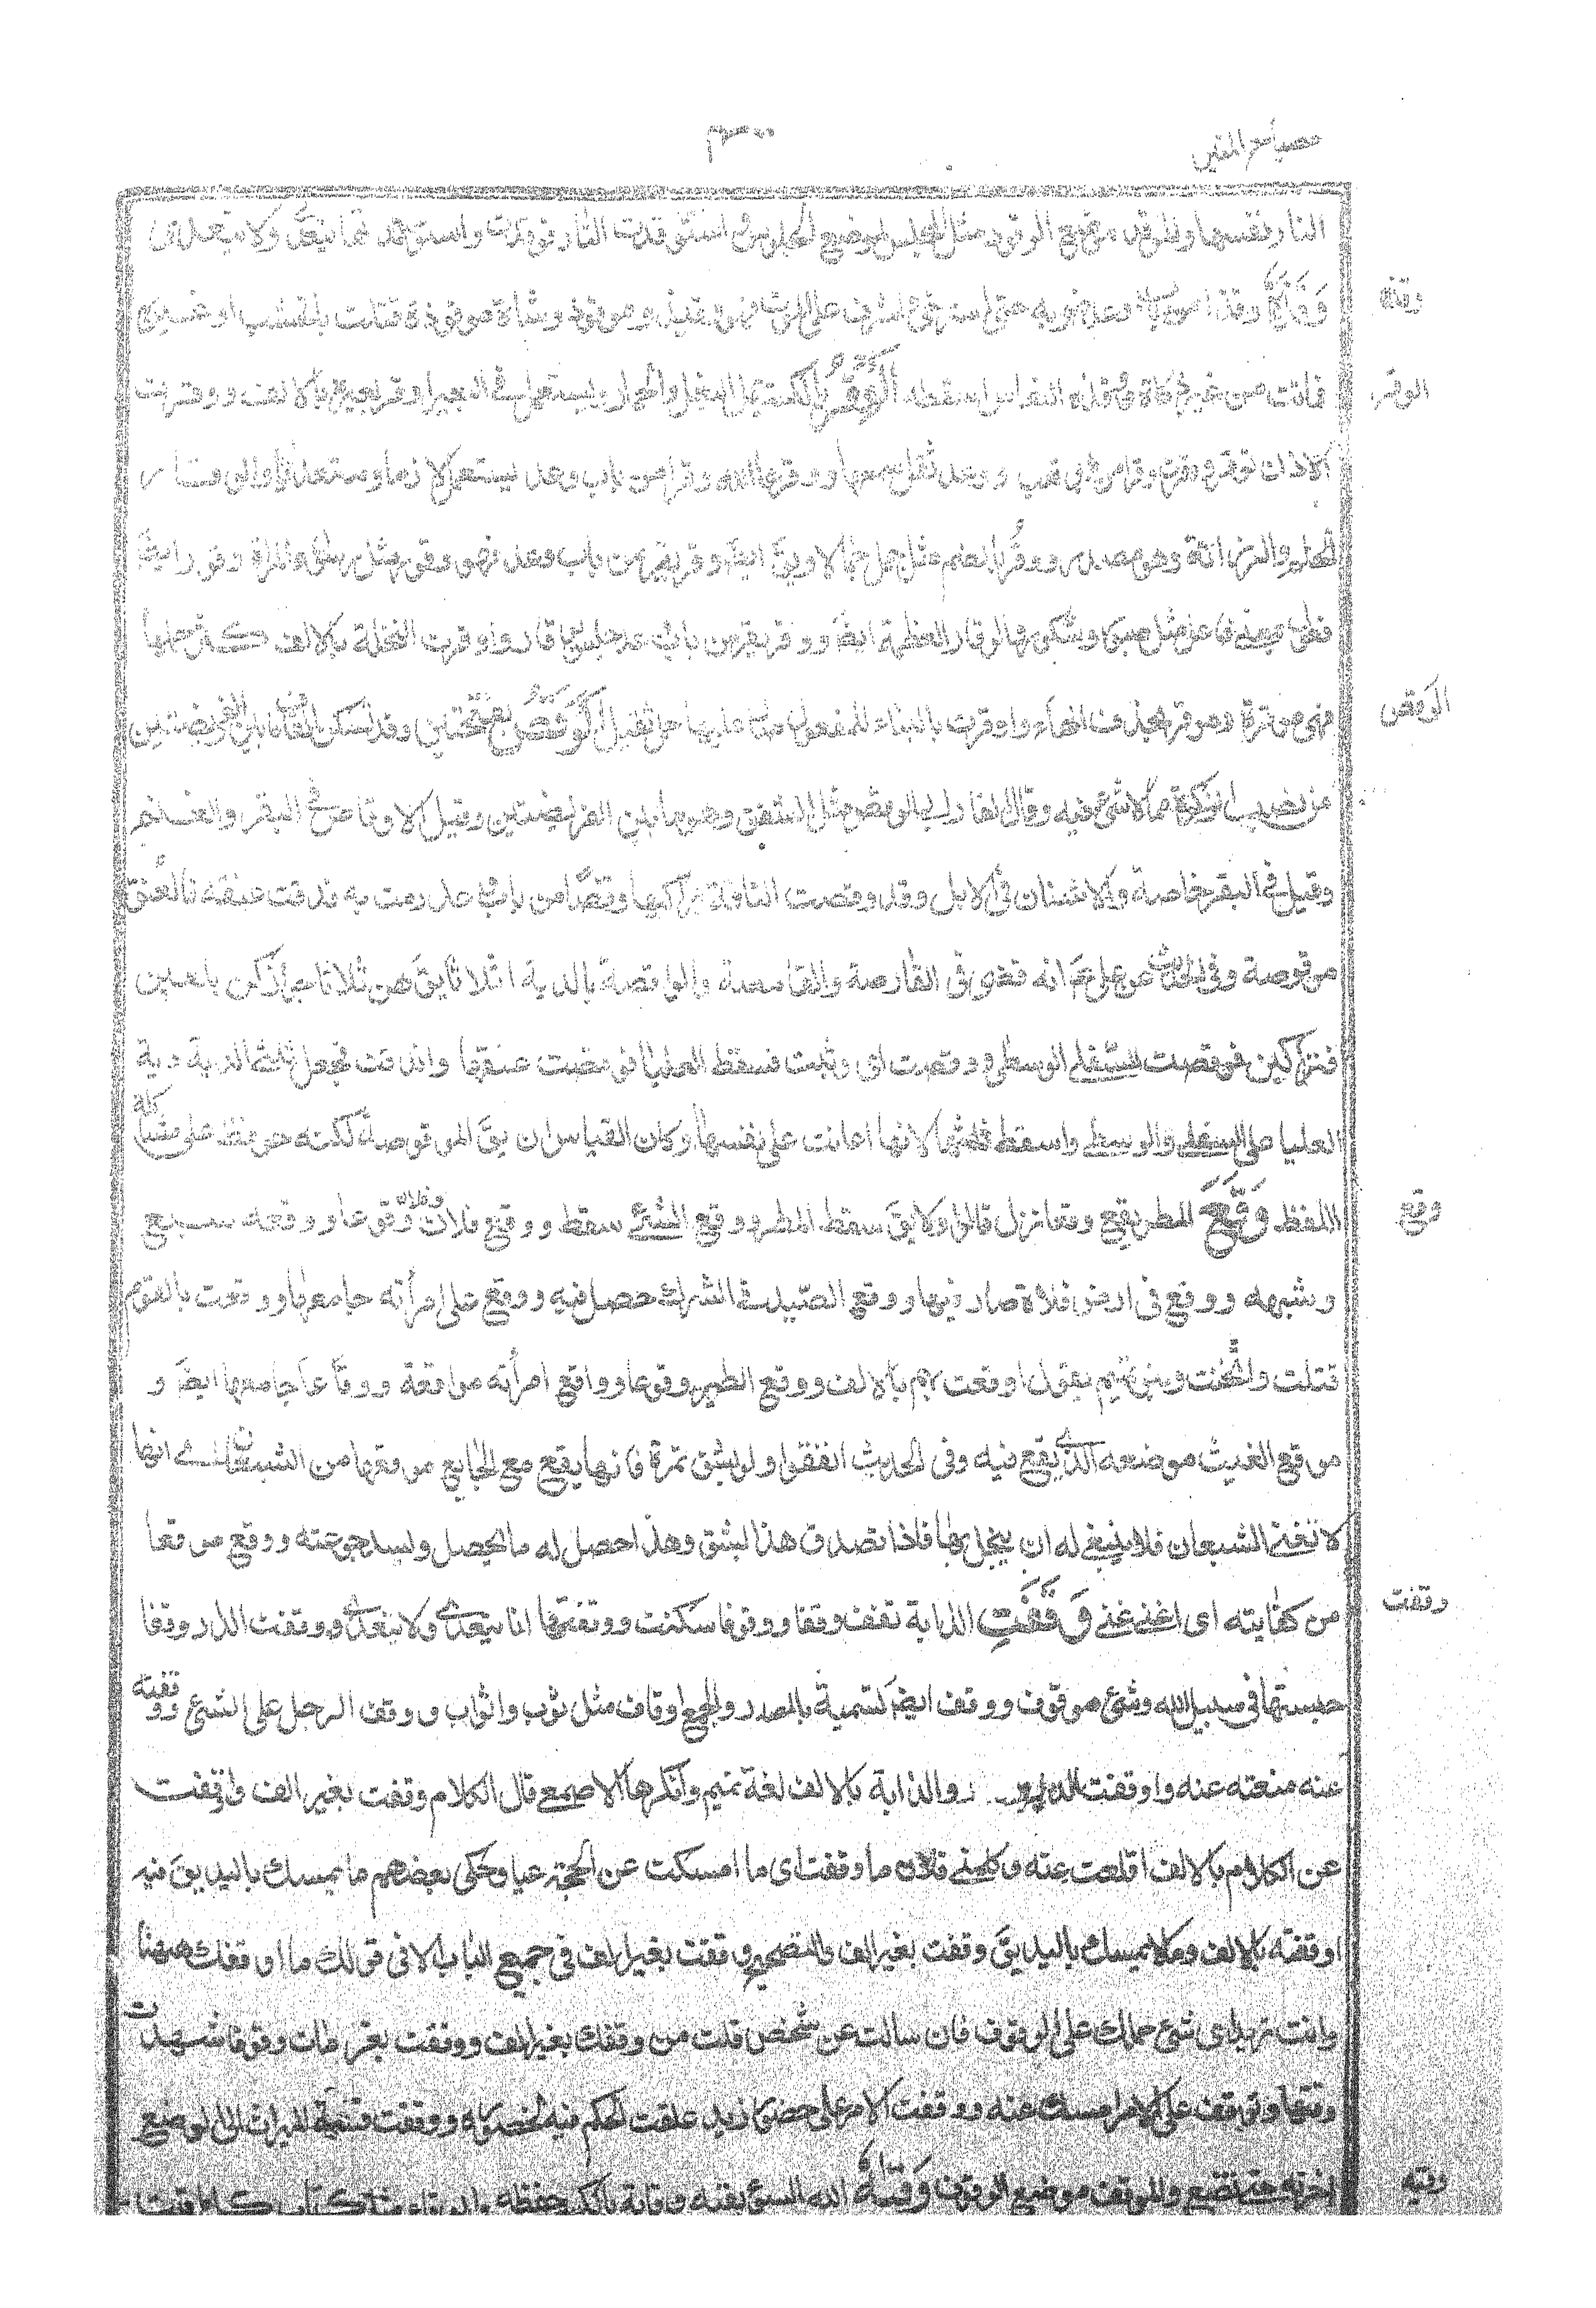 مصباح المنير
٣٠٠
النار نفسها والموقد موضع الوقود مثل المجلس لموضع الجلوس واستوقدت النار توقدت واستوقدتها يتعدى ولا يتعدى
وقذه
وَقَذَهُ وقذا من باب وعد ضربه حتى استرخى واشرف على الموت فهو وقيذ وموقوذ وشاة موقوذة قتلت بالخشب او بغيره
الوقر
فماتت من غير ذكاة ووقذه النعاس اسقطه الْوِقْرُ بالكسر حمل البغل والحمار ويستعمل في البعير واوقر بعيره بالالف ووقرت
الاذن توقر ووقرت وقرا من باب تعب ووعد ثقل سمعها ووقرها الله وقرا من باب وعد يستعمل لازما ومتعديا والوقار
الحلم والرزانة وهو مصدر وقر بالضم مثل جمل جمالا ويق ايضا وقر يقر من باب وعد فهو وقور مثل رسول والمراة وقور ايضا
فعول بمعنى فاعل مثل صبور وشكور والوقار العظمة ايضا ووقر يقر من باب وعد جلس بوقار واوقرت النخلة بالالف كثر حملها
الوقص
فهي موقرة وموقر بحذف الهاء واوقرت بالبناء للمفعول صار عليها حمل ثقيل الْوَقَصُ بفتحتين وقد تسكن القاف ما بين الفريضتين
من نصب الزكوة مما لا شئ فيه وقال الفارابي الوقص مثل الشنق وهو ما بين الفريضتين وقيل الاوقاص في البقر والغنم
وقيل في البقر خاصة والاشناق في الابل وقد وقصت الناقة براكبها وقصا من باب وعد رمت به فدقت عنقه فالعنق
موقوصة وفي الحديث عن علي ع انه قضى في القارصة والقامصة والواقصة بالدية اثلاثا يق هن ثلاث جوار كن يلعبن
فتراكبن فقرصت السفلى الوسطى فقمصت اى وثبت فسقط العليا فوقصت عنقها واندقت فجعل ثلثى الدية دية
العليا على السفلى والوسطى واسقط ثلثها لانها اعانت على نفسها وكان القياس ان يق الموقوصة لكنه حوفظ على مشاكلة
وقع
اللفظ وَقَعَ المطر يقع وقعا نزل قالوا ولا يق سقط المطر ووقع الشئ سقط ووقع فلان في فلان وقوعا ووقعه سبع
وشبهه ووقع فى ارض فلاة صار فيها ووقع الصيد في الشرك حصل فيه ووقع على امرأته جامعها ووقعت بالقوم
قتلت واثخنت وبنو تميم يقول اوقعت بهم بالالف ووقع الطير وقوعا وواقع امرأته مواقعة ووقاعا جامعها ايضا و
موقع الغيث موضعه الذى يقع فيه وفى الحديث اتقوا ولو بشق تمرة فانها يقع مع الجايع موقعها من الشبعان اى انها
لا تغنى الشبعان فلا ينبغى له ان يبخل بها فاذا تصدق هذا بشق وهذا حصل له ما يحصل ويسد جوعته ووقع موقعا
وقفت
من كفايته اى اغنى غنى وَقَفَتِ الدابة تقف وقفا ووقوفا سكنت ووقفتها انا يتعدى ولا يتعدى ووقفت الدار وقفا
حبستها في سبيل الله وشئ موقوف ووقف ايضا تسمية بالمصدر والجمع اوقاف مثل ثوب واثواب ووقف الرجل على الشئ ووقفته
عنه منعته عنه واوقفت الدار والدابة بالالف لغة تميم وانكرها الاصمعى قال الكلام وقفت بغير الف واوقفت
عن الكلام بالالف اقلعت عنه وكلمنى فلان ما وقفت اى ما امسكت عن الحجة عيا وحكى بعضهم ما يمسك باليد يق فيه
اوقفته بالالف وما لا يمسك باليد يق وقفت بغير الف والفصيح وقفت بغير الف فى جميع الباب الا فى قولك ما اوقفك ههنا
وانت تريد اى شئ حملك على الوقوف فان سالت عن شخص قلت من وقفك بغير الف ووقفت بعرفات وقوفا شهدت
وقتها وتوقف على الامر امسك عنه ووقفت الامر على حضور زيد علقت الحكم فيه بحضوره ووقفت قسمة الميراث الى الوضع
وقيه
اخرته حتى تضع والموقف موضع الوقوف وَقَاهُ الله السوء يقيه وقاية بالكسر حفظه والوقاء مثل كتاب كل ما وقيت